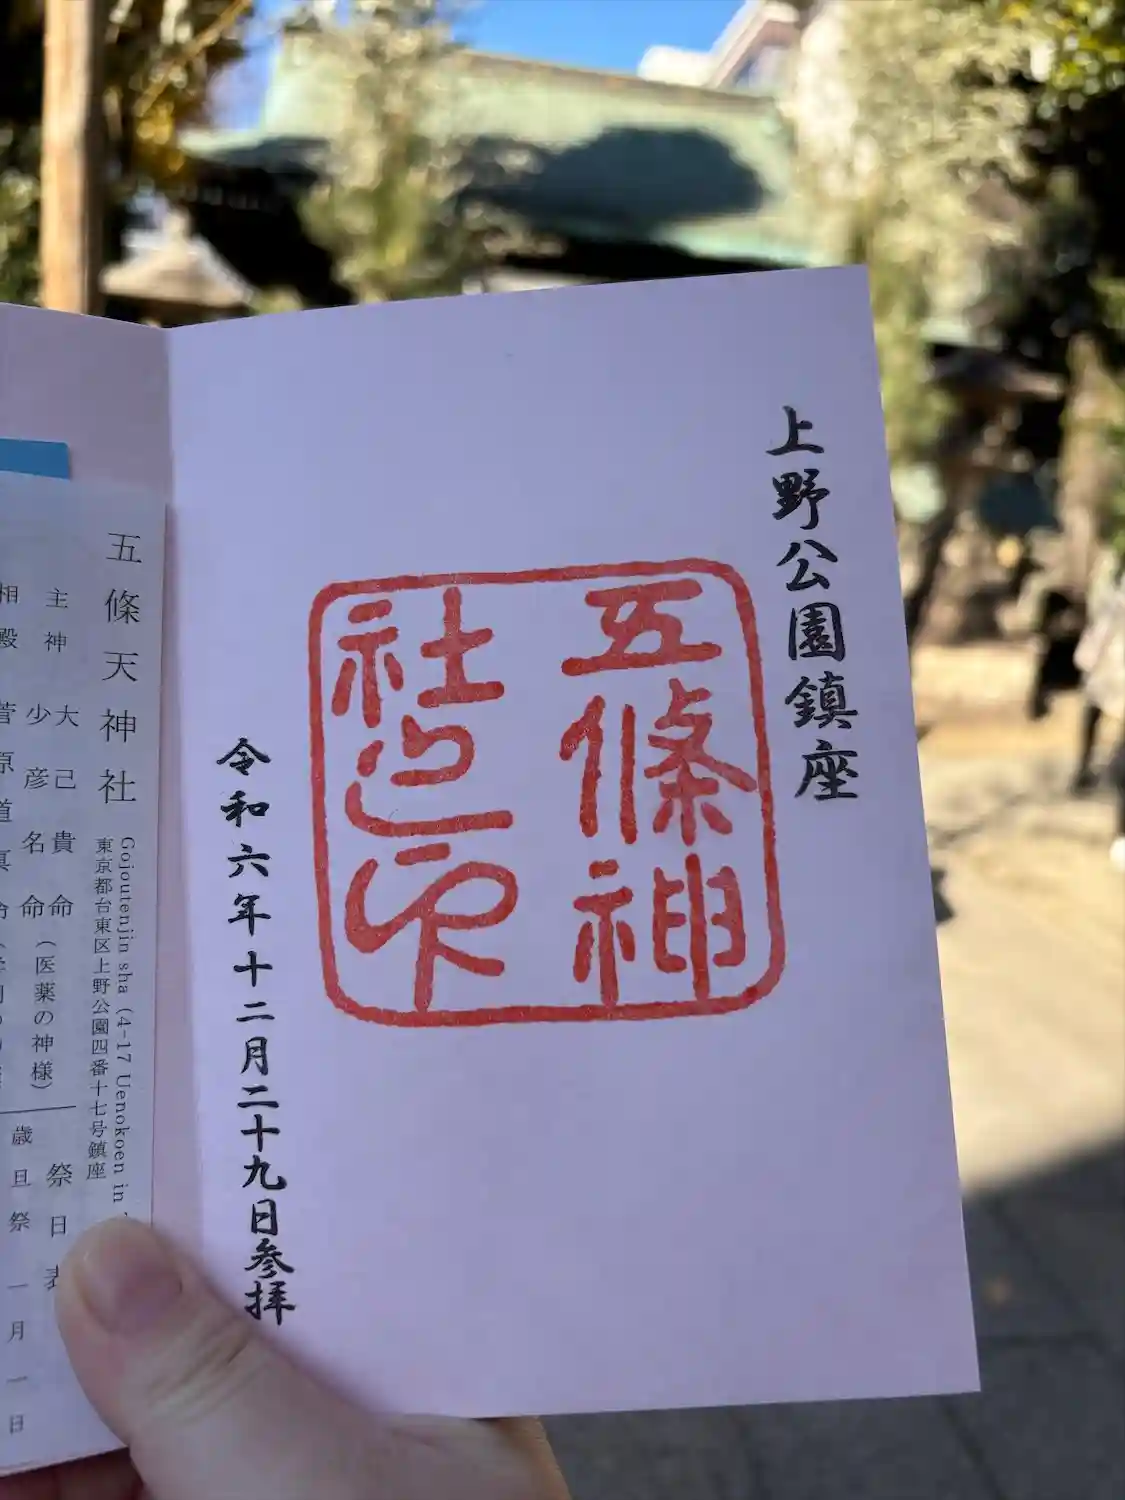 上野公園鎮座
五條神
社之印
令和六年十二月二十九日参拝
五條天神社
Gojoutenjin sha (4-17 Uenokoen in
東京都台東区上野公園四番十七号鎮座
主神
大己貴命
少彦名命
(医薬の神様)
相殿
菅原道真
祭日表
歳旦祭 一月一日